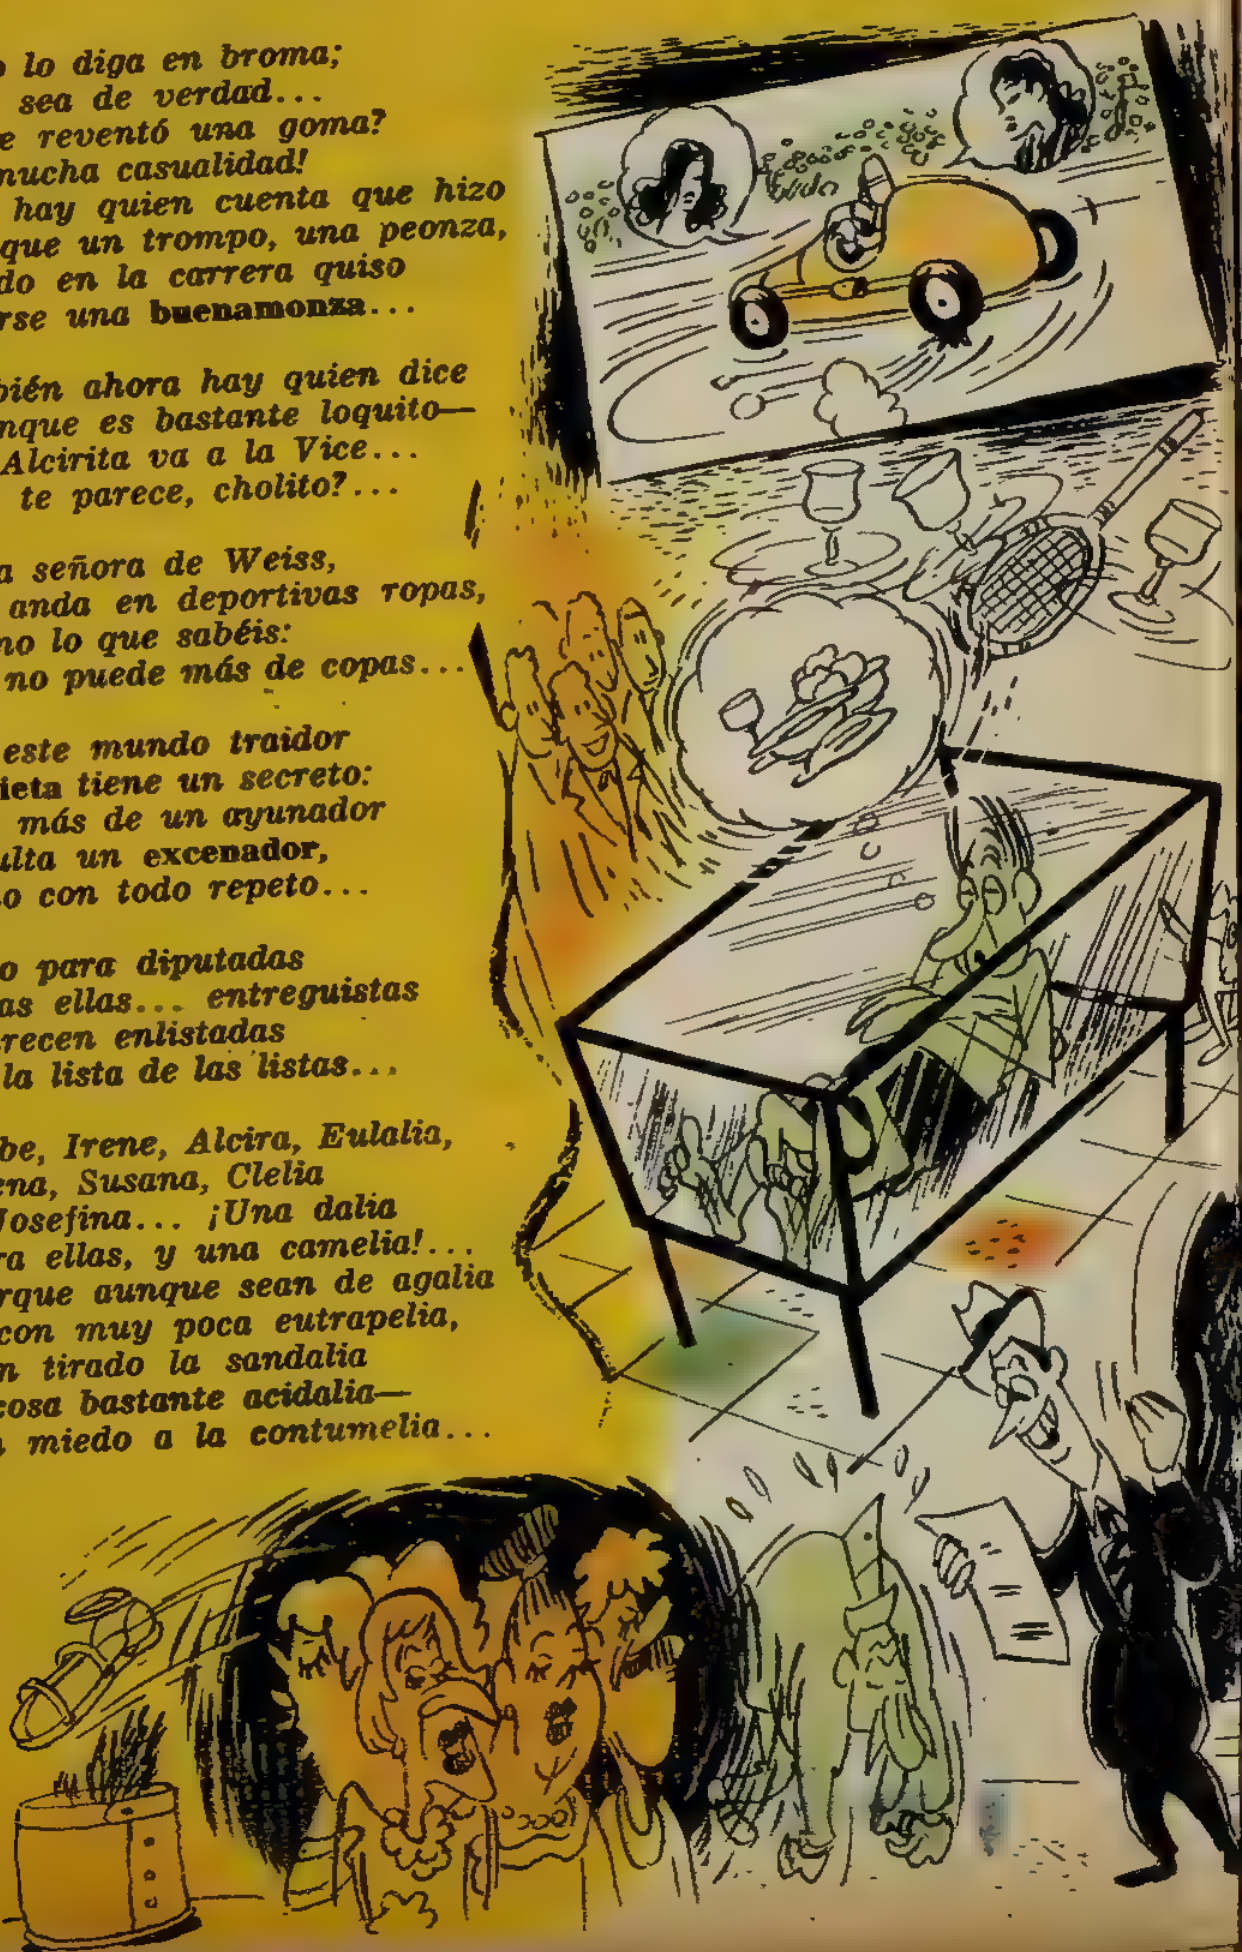 lo diga en broma;
sea de verdad...
reventó una goma?
mucha casualidad!
hay quien cuenta que hizo
que un trompo, una peonza,
do en la carrera quiso
rse una buenamonza...
bién ahora hay quien dice
nque es bastante loquito—
Alcirita va a la Vice...
te parece, cholito?...
a señora de Weiss,
anda en deportivas ropas,
no lo que sabéis:
no puede más de copas...
este mundo traidor
ieta tiene un secreto:
más de un ayunador
ulta un excenador,
o con todo repeto...
o para diputadas
as ellas... entreguistas
recen enlistadas
la lista de las listas...
be, Irene, Alcira, Eulalia,
ena, Susana, Clelia
Josefina... ¡Una dalia
ra ellas, y una camelia!...
rque aunque sean de agalia
con muy poca eutrapelia,
n tirado la sandalia
cosa bastante acidalia—
miedo a la contumelia...